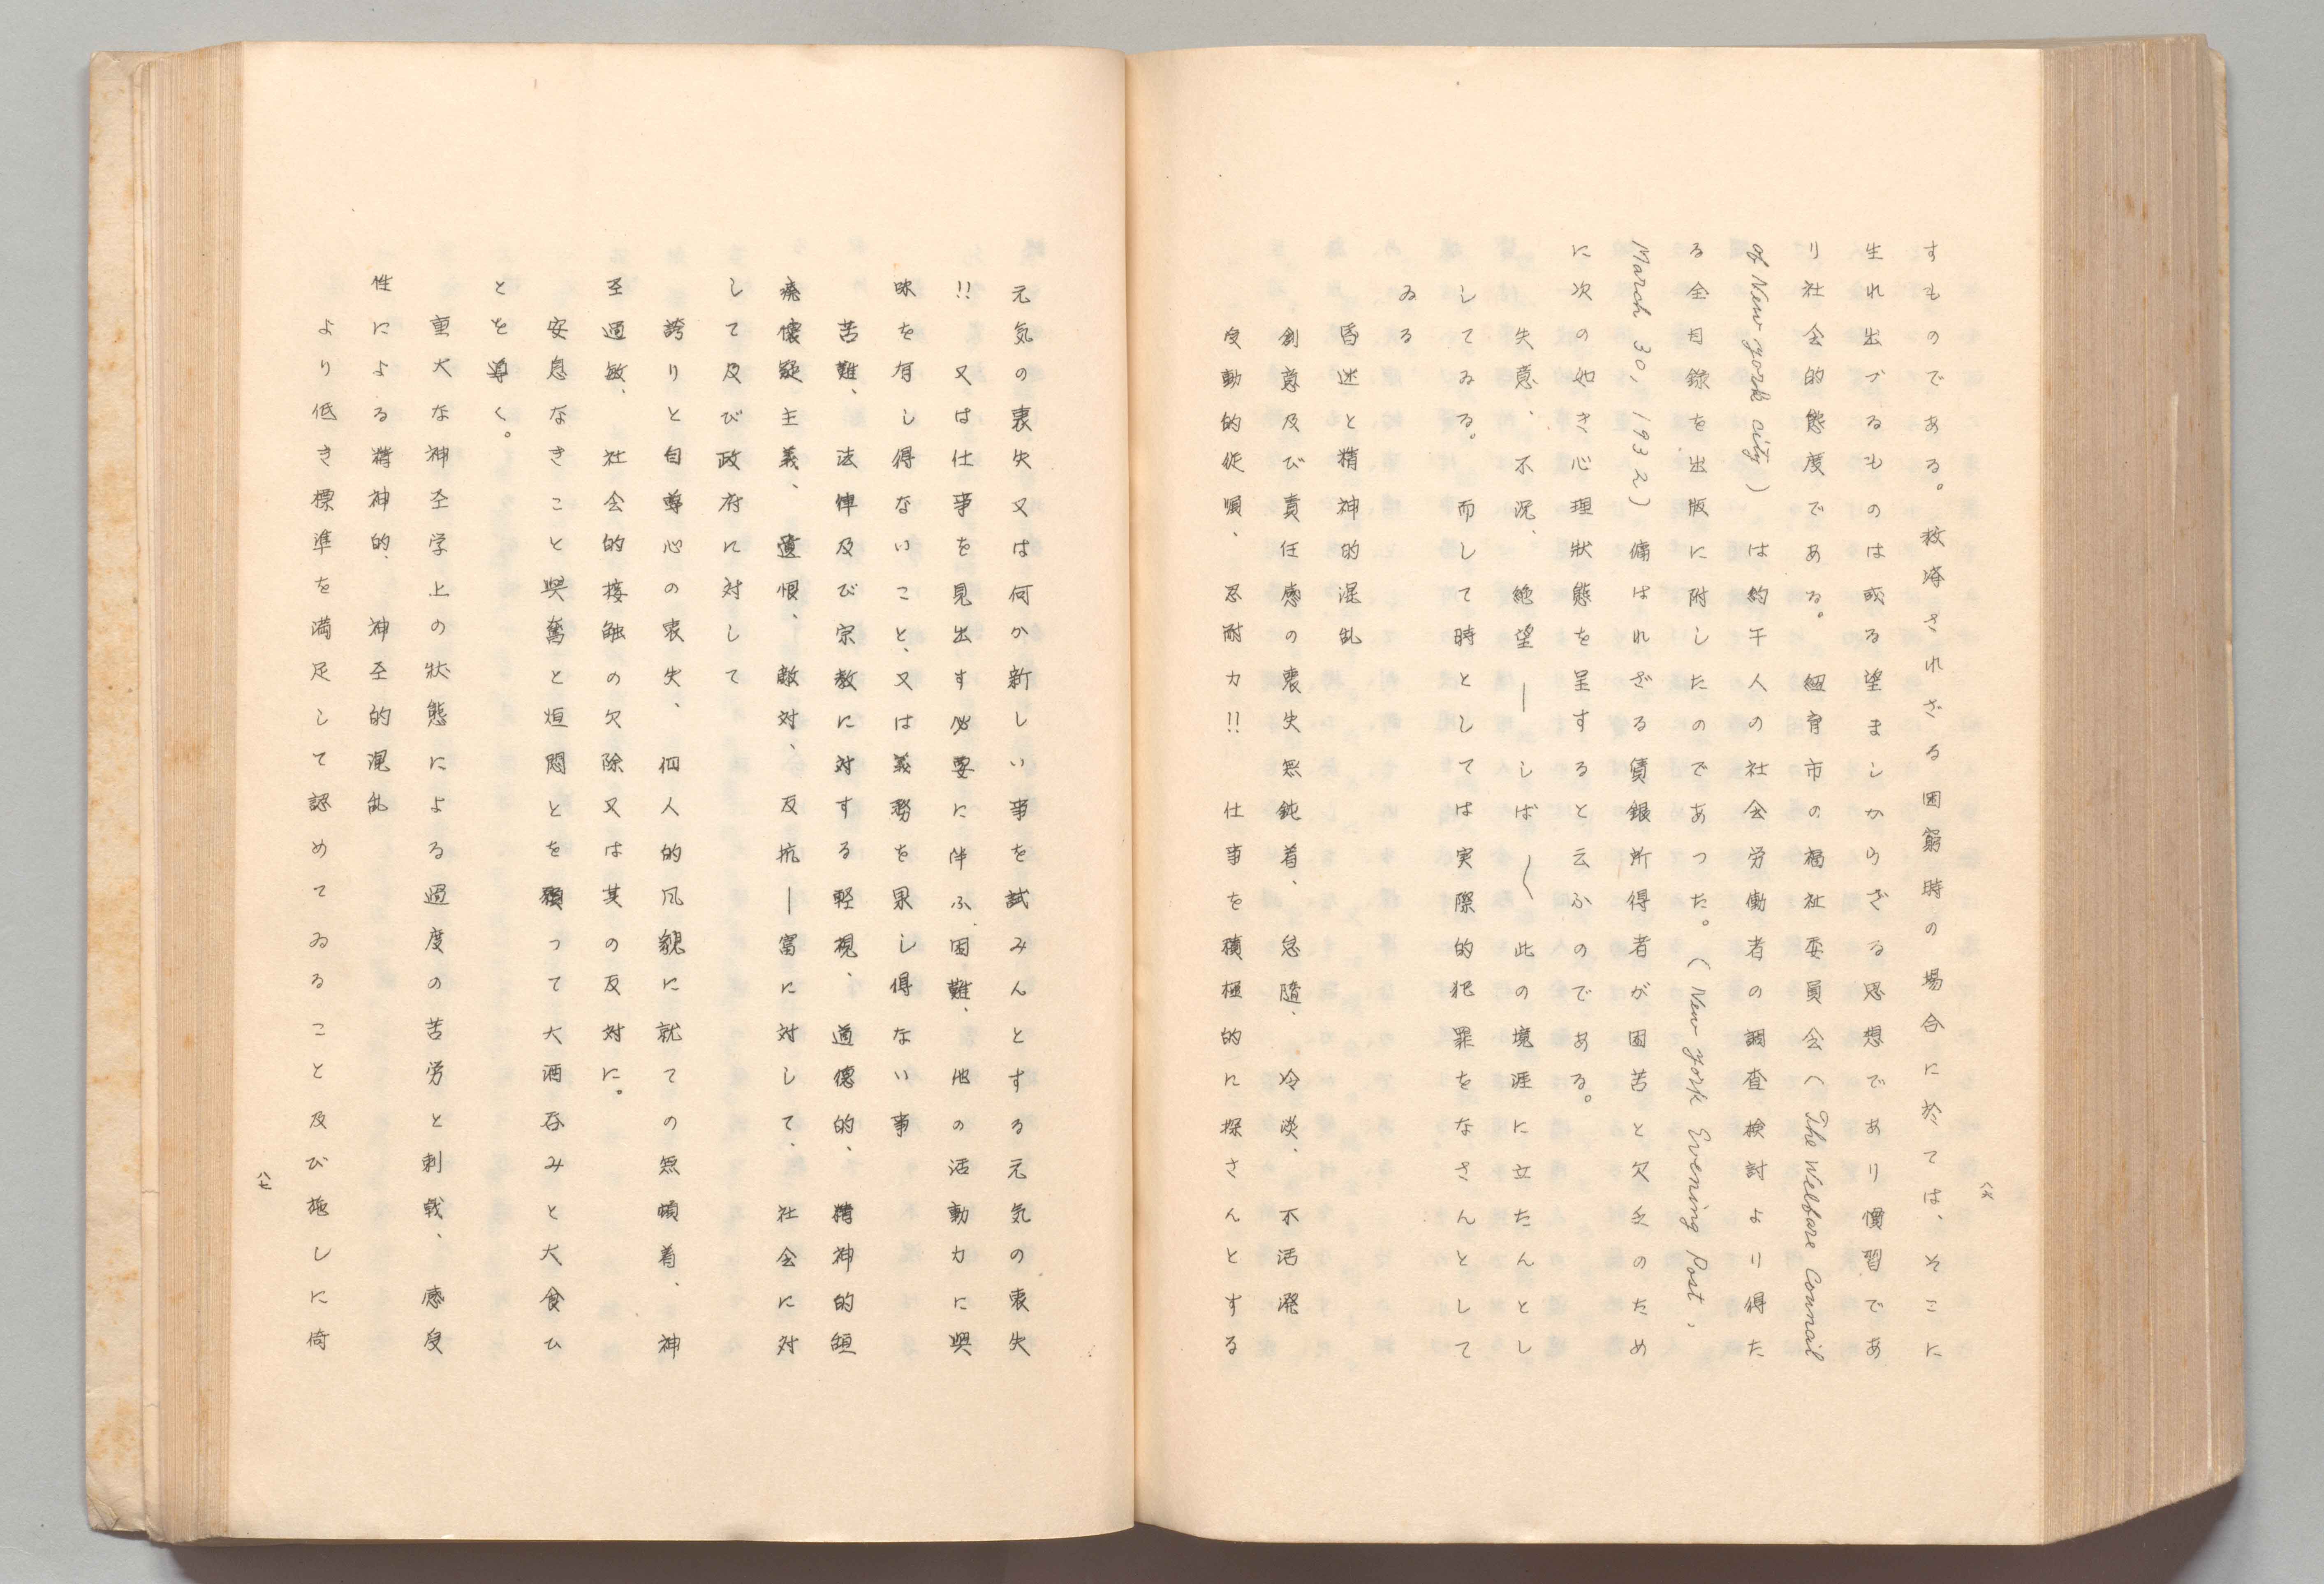 八六
すものである。救済されざる困窮時の場合に於ては、そこに
生れ出づるものは或る望ましからざる思想であり慣習であ
り社会的態度である。紐育市の福祉委員会(The Welfare Council
of New york city)は約千人の社会労働者の調査検討より得た
る全目録を出版に附したのであつた。(New york Evening Post,
March 30, 1932)傭はれざる賃銀所得者が困苦と欠乏のため
に次の如き心理狀態を呈すると云ふのである。
失意、不況、絶望―しば〱此の境涯に立たんとし
してゐる。而して時としては実際的犯罪をなさんとして
ゐる
昏迷と精神的混乱
創意及び責任感の喪失無鈍着、怠隋、冷淡、不活溌
受動的従順、忍耐力!!仕事を積極的に探さんとする
元気の喪失又は何か新しい事を試みんとする元気の喪失
!!又は仕事を見出す必要に伴ふ困難、他の活動力に興
味を有し得ないこと、又は義務を果し得ない事
苦難、法律及び宗教に対する軽視、道徳的、精神的頽
廃懐疑主義、遺恨、敵対、反抗―富に対して、社会に対
して及び政府に対して
誇りと自尊心の喪失、個人的風貌に就ての無頓着、神
経過敏、社会的接触の欠除又は其の反対に。
安息なきこと興奮と煩悶とを獲って大酒呑みと大食ひ
とを導く。
重大な神经学上の狀態による過度の苦労と刺戟、感受
性による精神的、神经的混乱
より低き標準を満足して認めてゐること及び施しに倚
八七